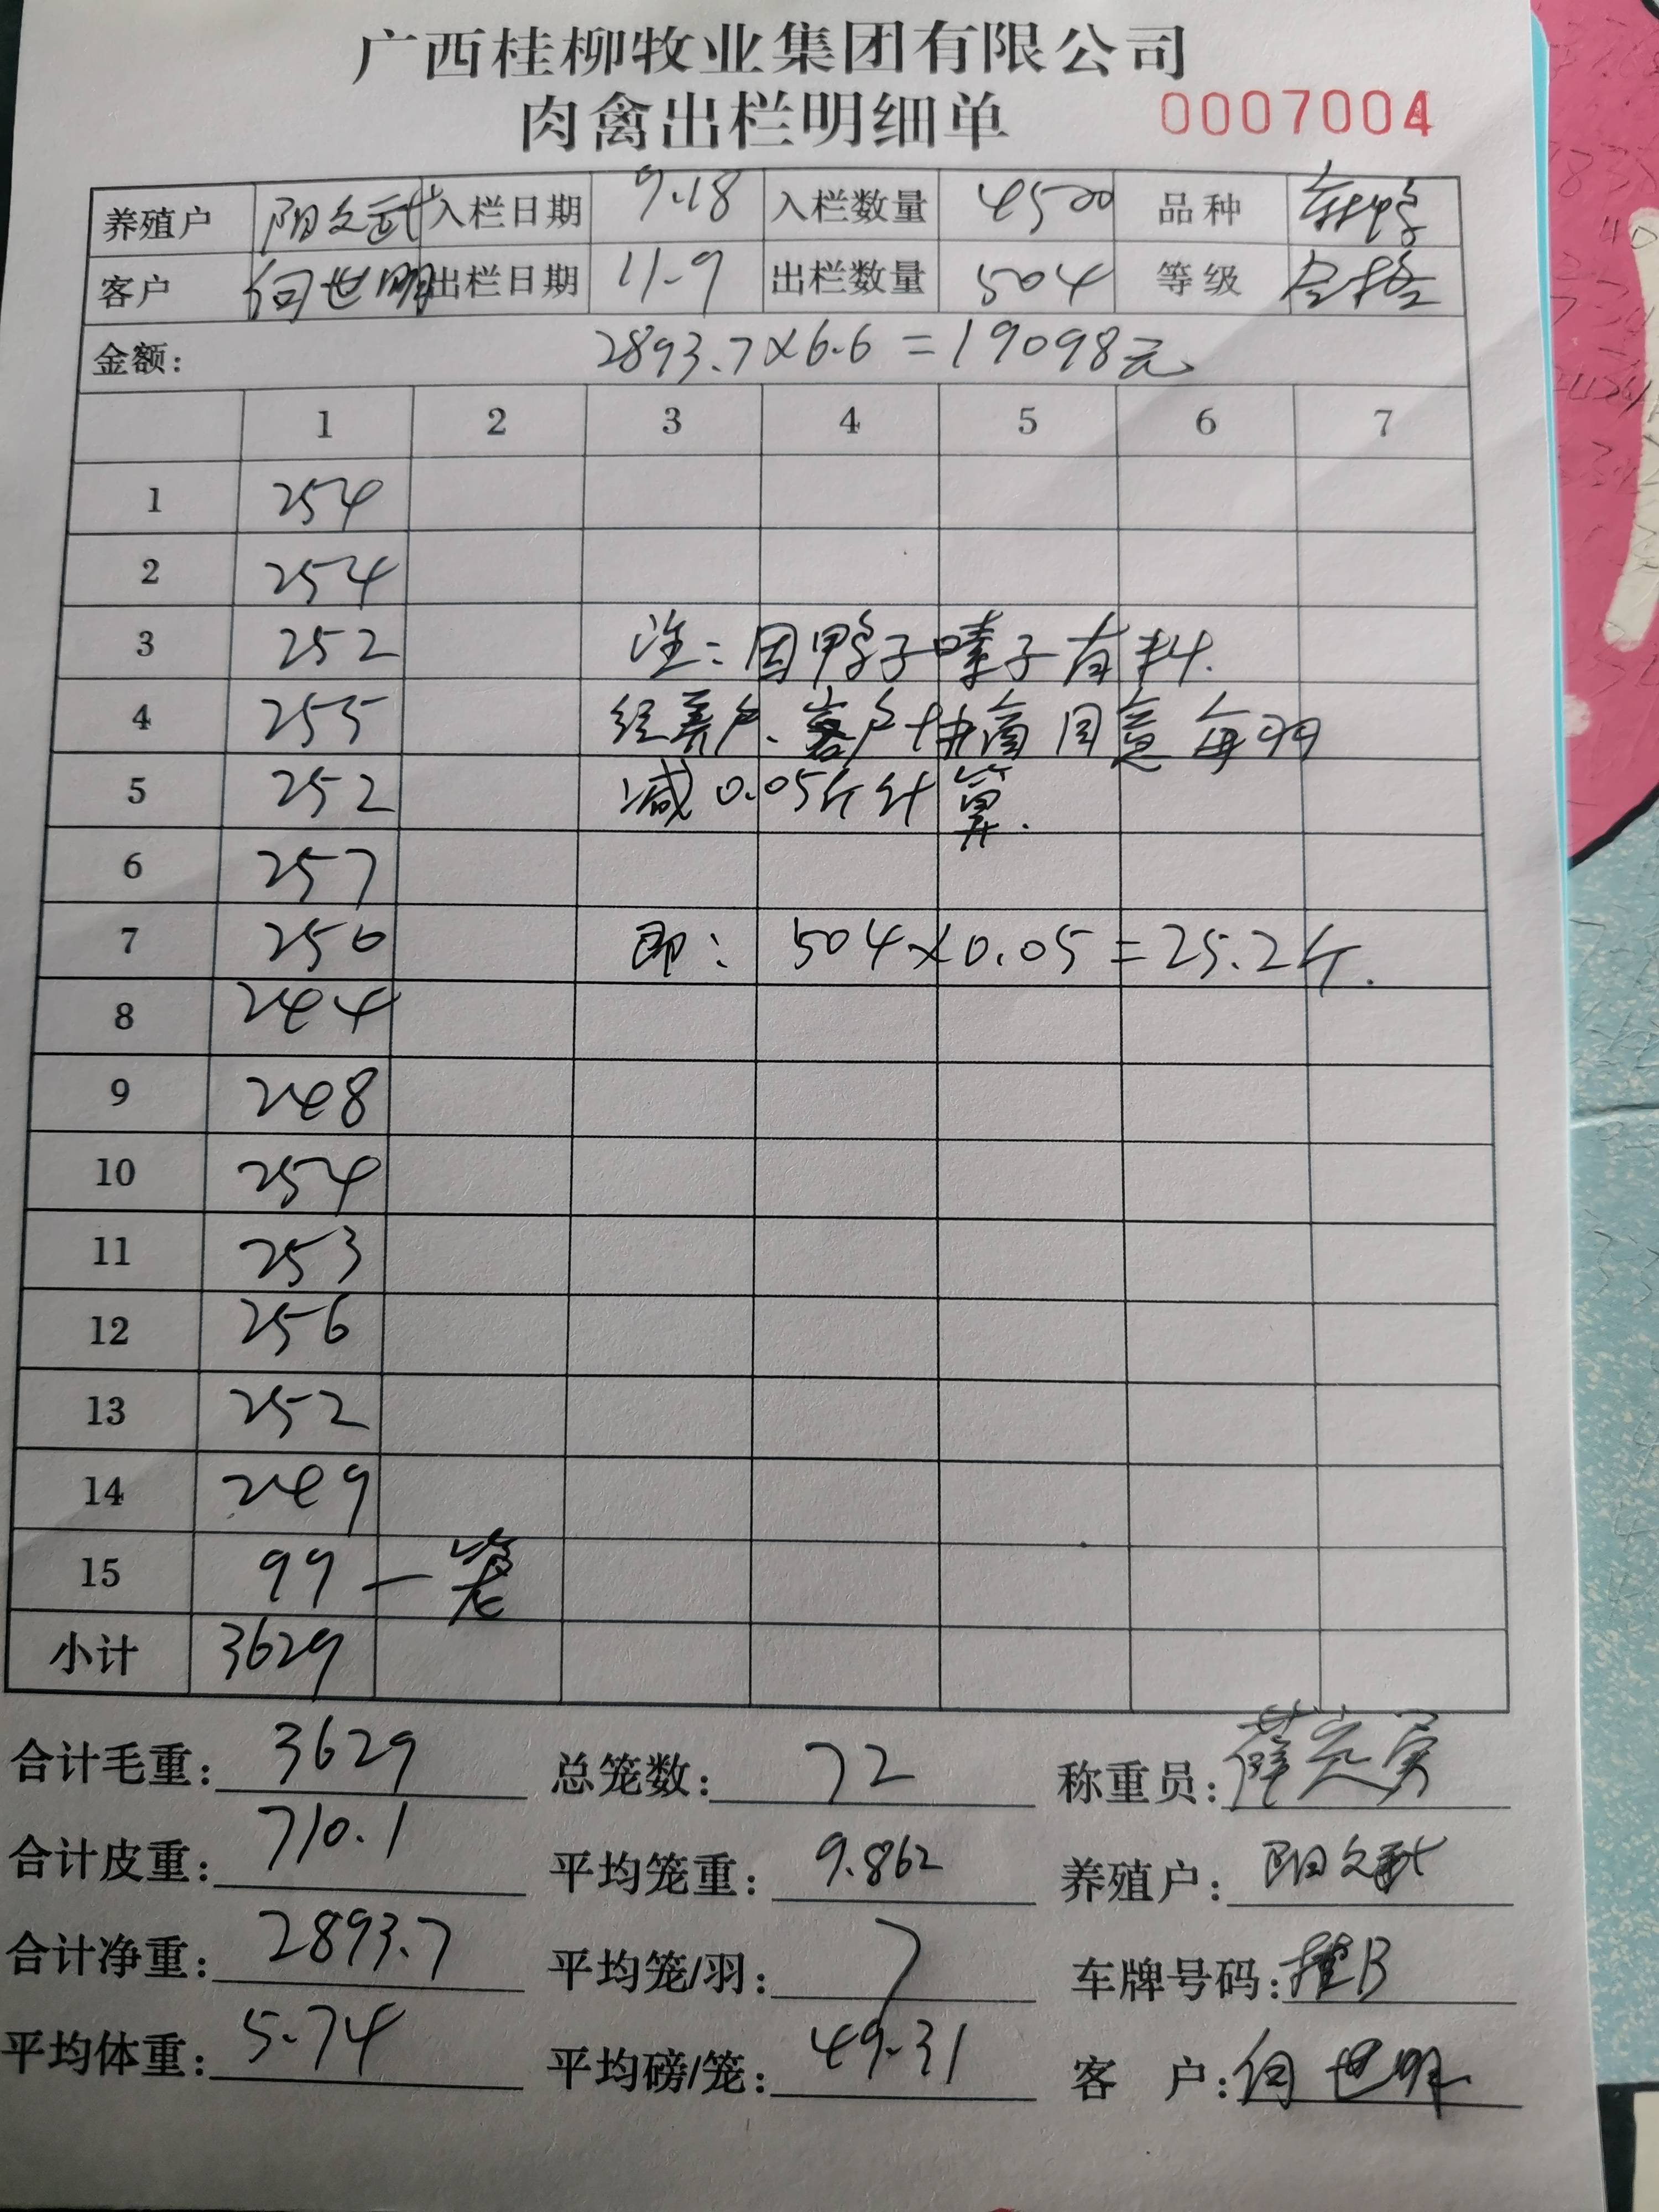 广西桂柳牧业集团有限公司
肉禽出栏明细单 0007004
养殖户 阳文武 入栏日期 9.18 入栏数量 4500 品种
客户 何世明 出栏日期 11-9 出栏数量 504 等级 合格
金额: 2893.7×6.6=19098元
1 2 3 4 5 6 7
1 254
2 254
3 252 注:因鸭子嗉子有料.
4 255 经养户、客户协商同意每羽
5 252 减0.05斤计算.
6 257
7 250 即: 504×0.05=25.2斤.
8 244
9 248
10 254
11 253
12 256
13 252
14 249
15 99 一笼
小计 3629
合计毛重: 3629 总笼数: 72 称重员:
合计皮重: 710.1 平均笼重: 9.862 养殖户: 阳文武
合计净重: 2893.7 平均笼/羽: 7 车牌号码: 桂B
平均体重: 5.74 平均磅/笼: 49.31 客 户: 何世明